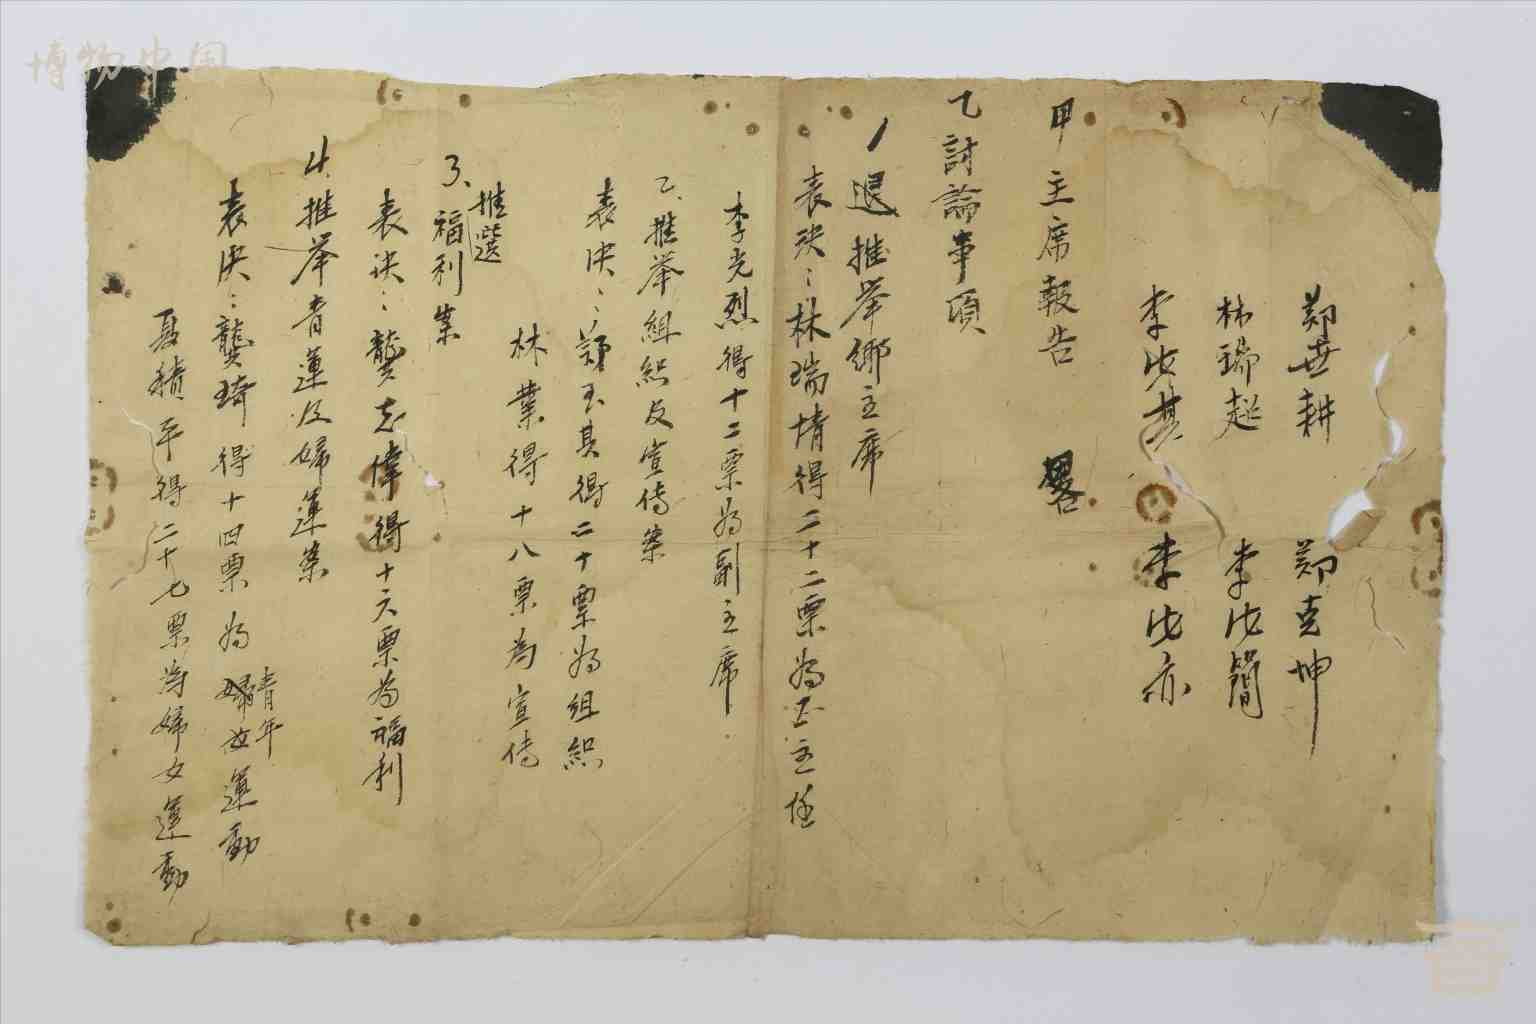 鄭世耕 鄭克坤
林瑞超 李此簡
李此其 李此亦
甲 主席報告 畧
乙 討論事項
1 退推举鄉主席
表決：林瑞情得二十二票为正主任
李光烈得十二票为副主席
2、推举組织及宣传案
表決：鄭玉其得二十票为組織
林業得十八票為宣传
推選
3、福利案
表决：龔志偉得十六票为福利
4、推举青運及婦運案
表决：龔琦得十四票为青年運動
得二十七票為婦女運動
博物中国